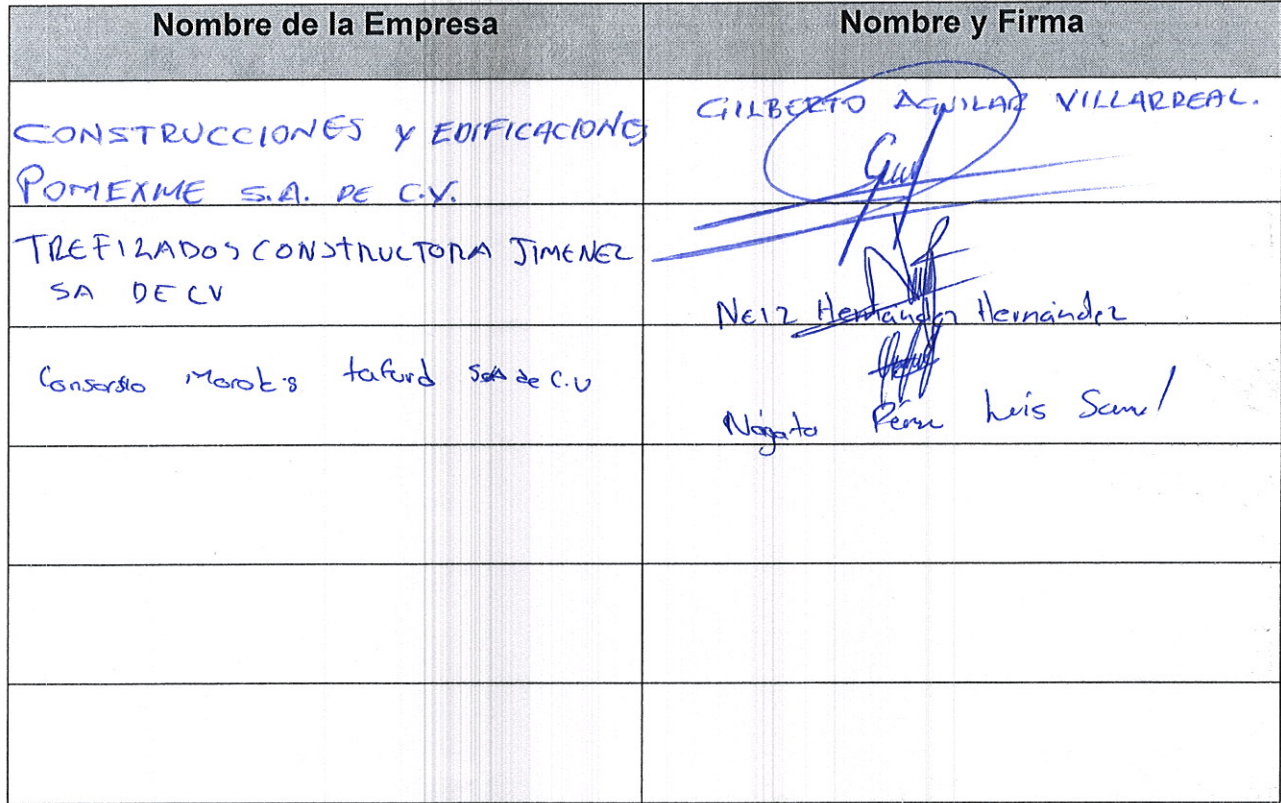 Nombre de la Empresa
Nombre y Firma
CONSTRUCCIONES Y EDIFICACIONES
POMEXME S.A. DE C.V.
GILBERTO AGUILAR VILLARREAL.
TREFILADOS CONSTRUCTORA JIMENEZ
SA DE CV
Hernández Hernández
Consorsio tafurd SA de C.V
Pérez Luis